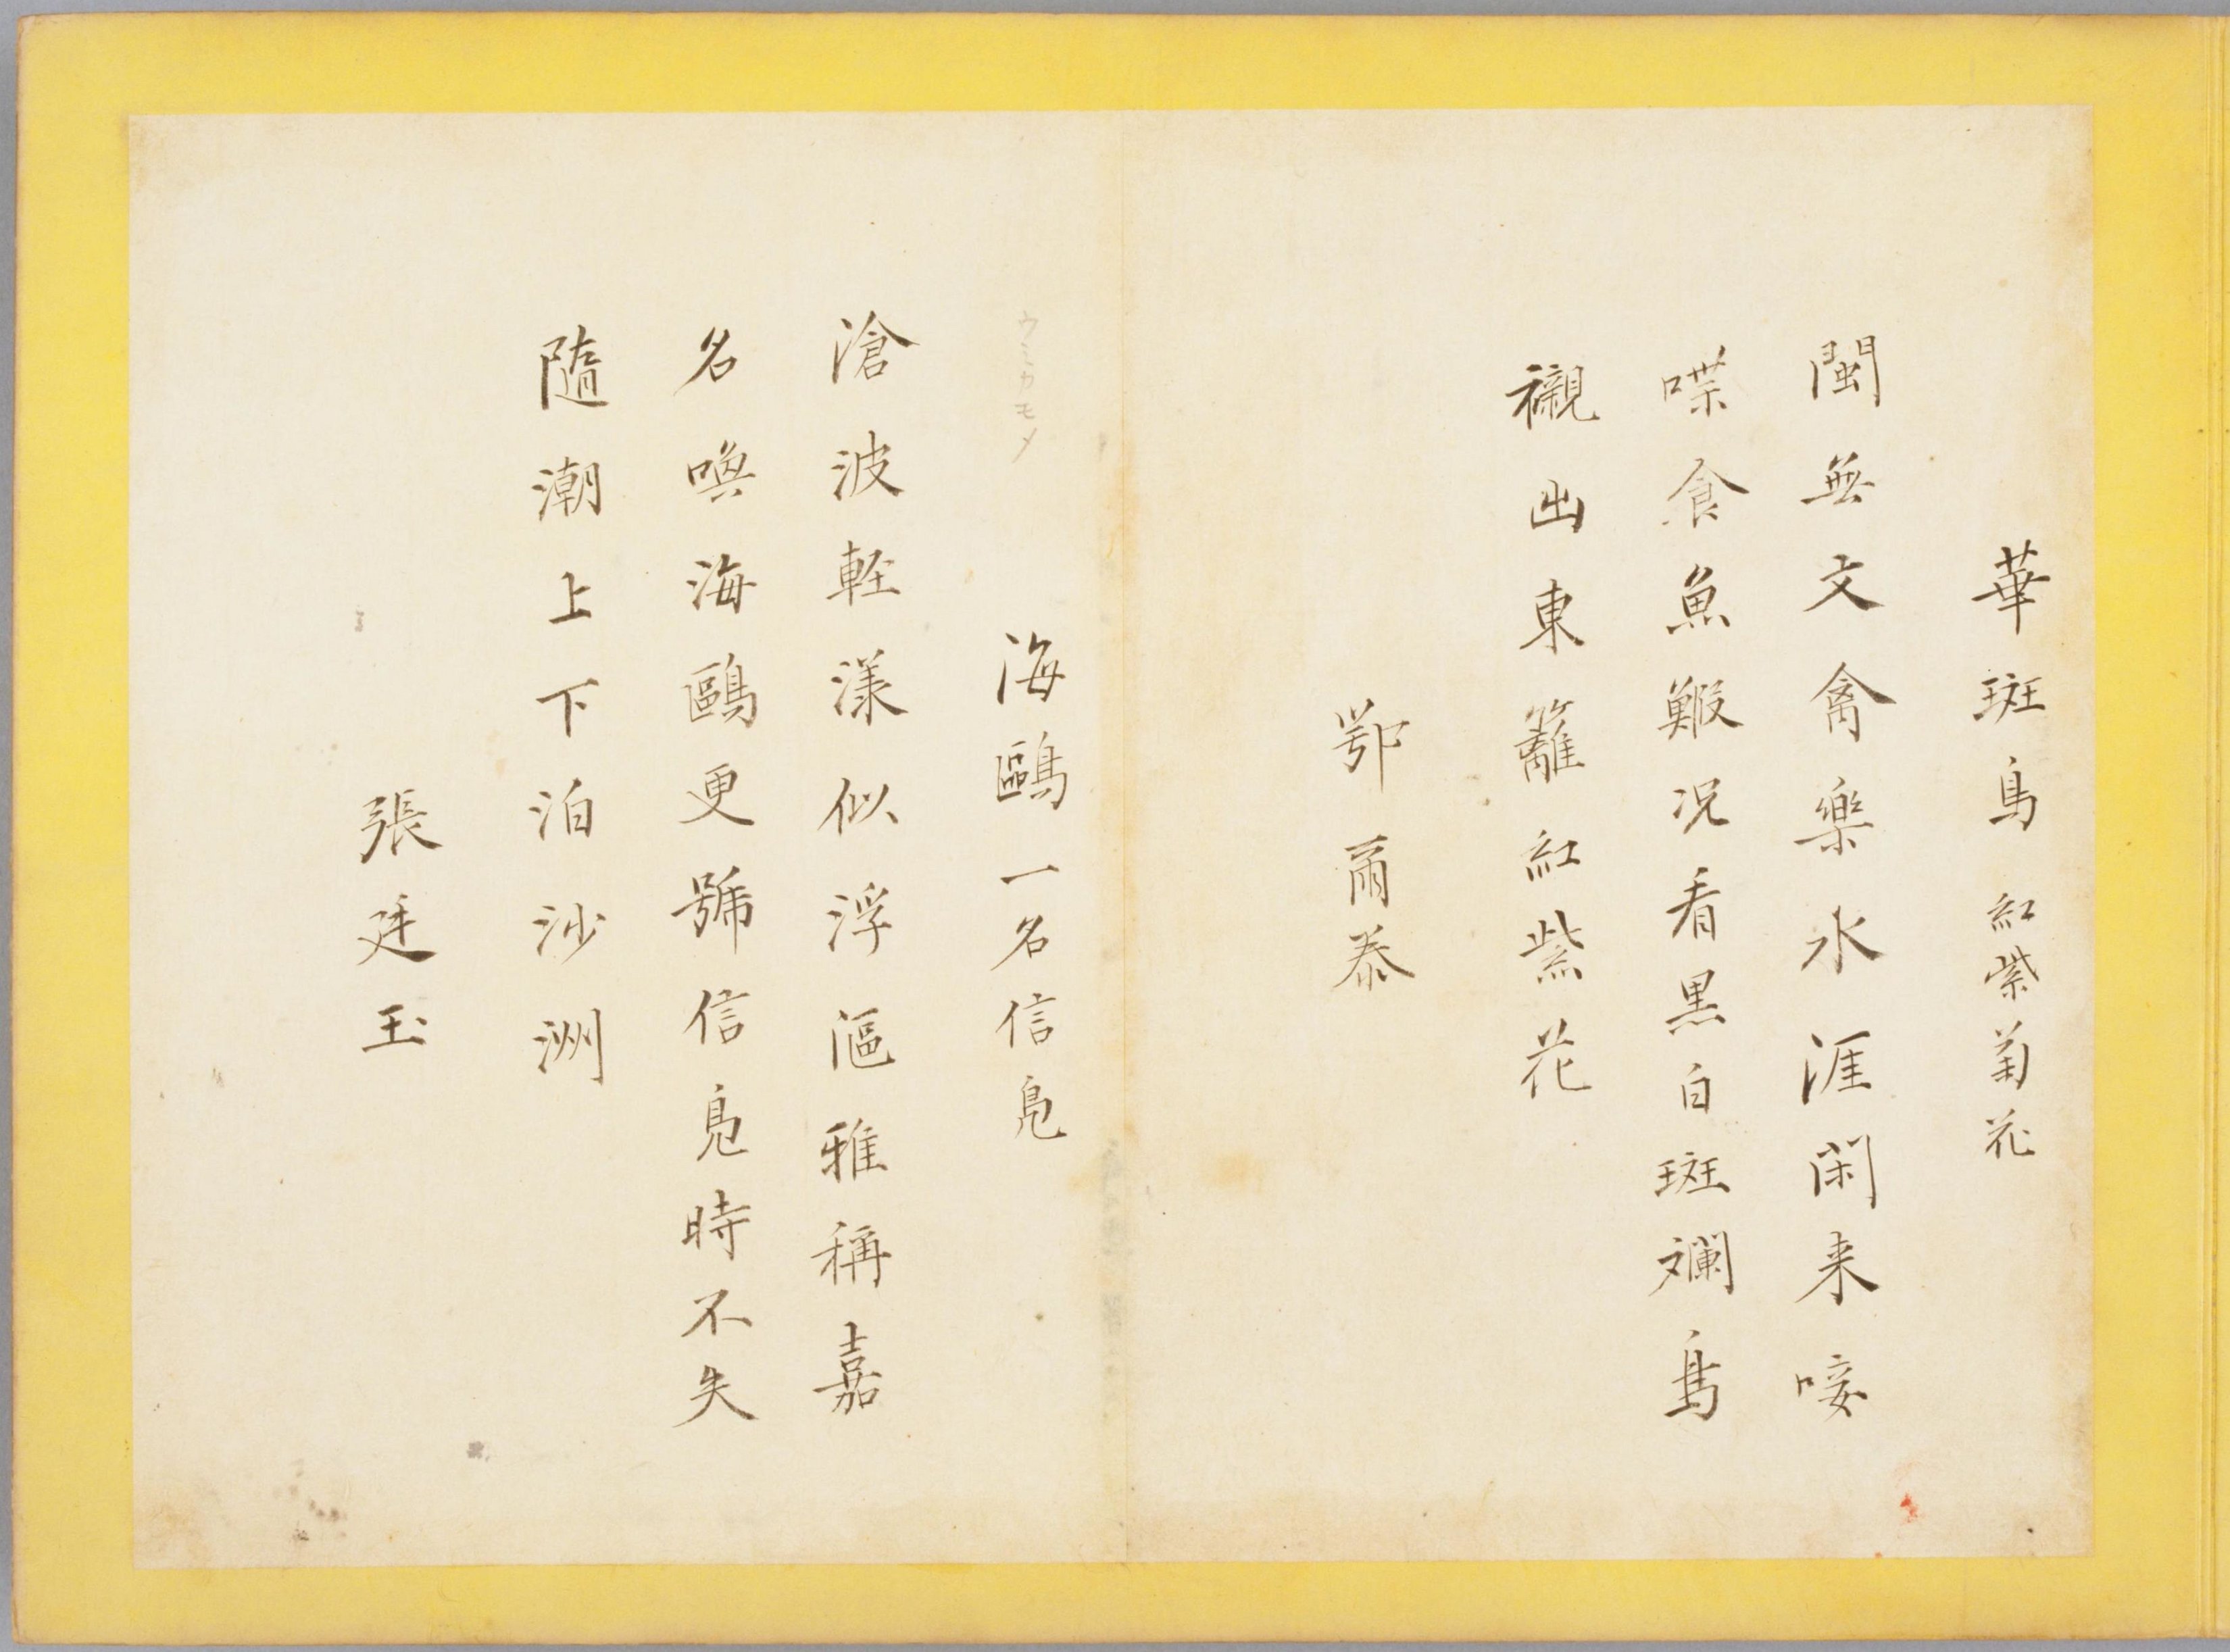 華斑鳥 紅紫菊花
閩無文禽樂水涯閑来唼
喋食魚鰕况看黑白斑斕鳥
襯出東籬紅紫花
鄂爾泰
ウミカモメ
海鷗一名信鳬
滄波軽漾似浮漚雅稱嘉
名喚海鷗更號信鳬時不失
隨潮上下泊沙洲
張廷玉